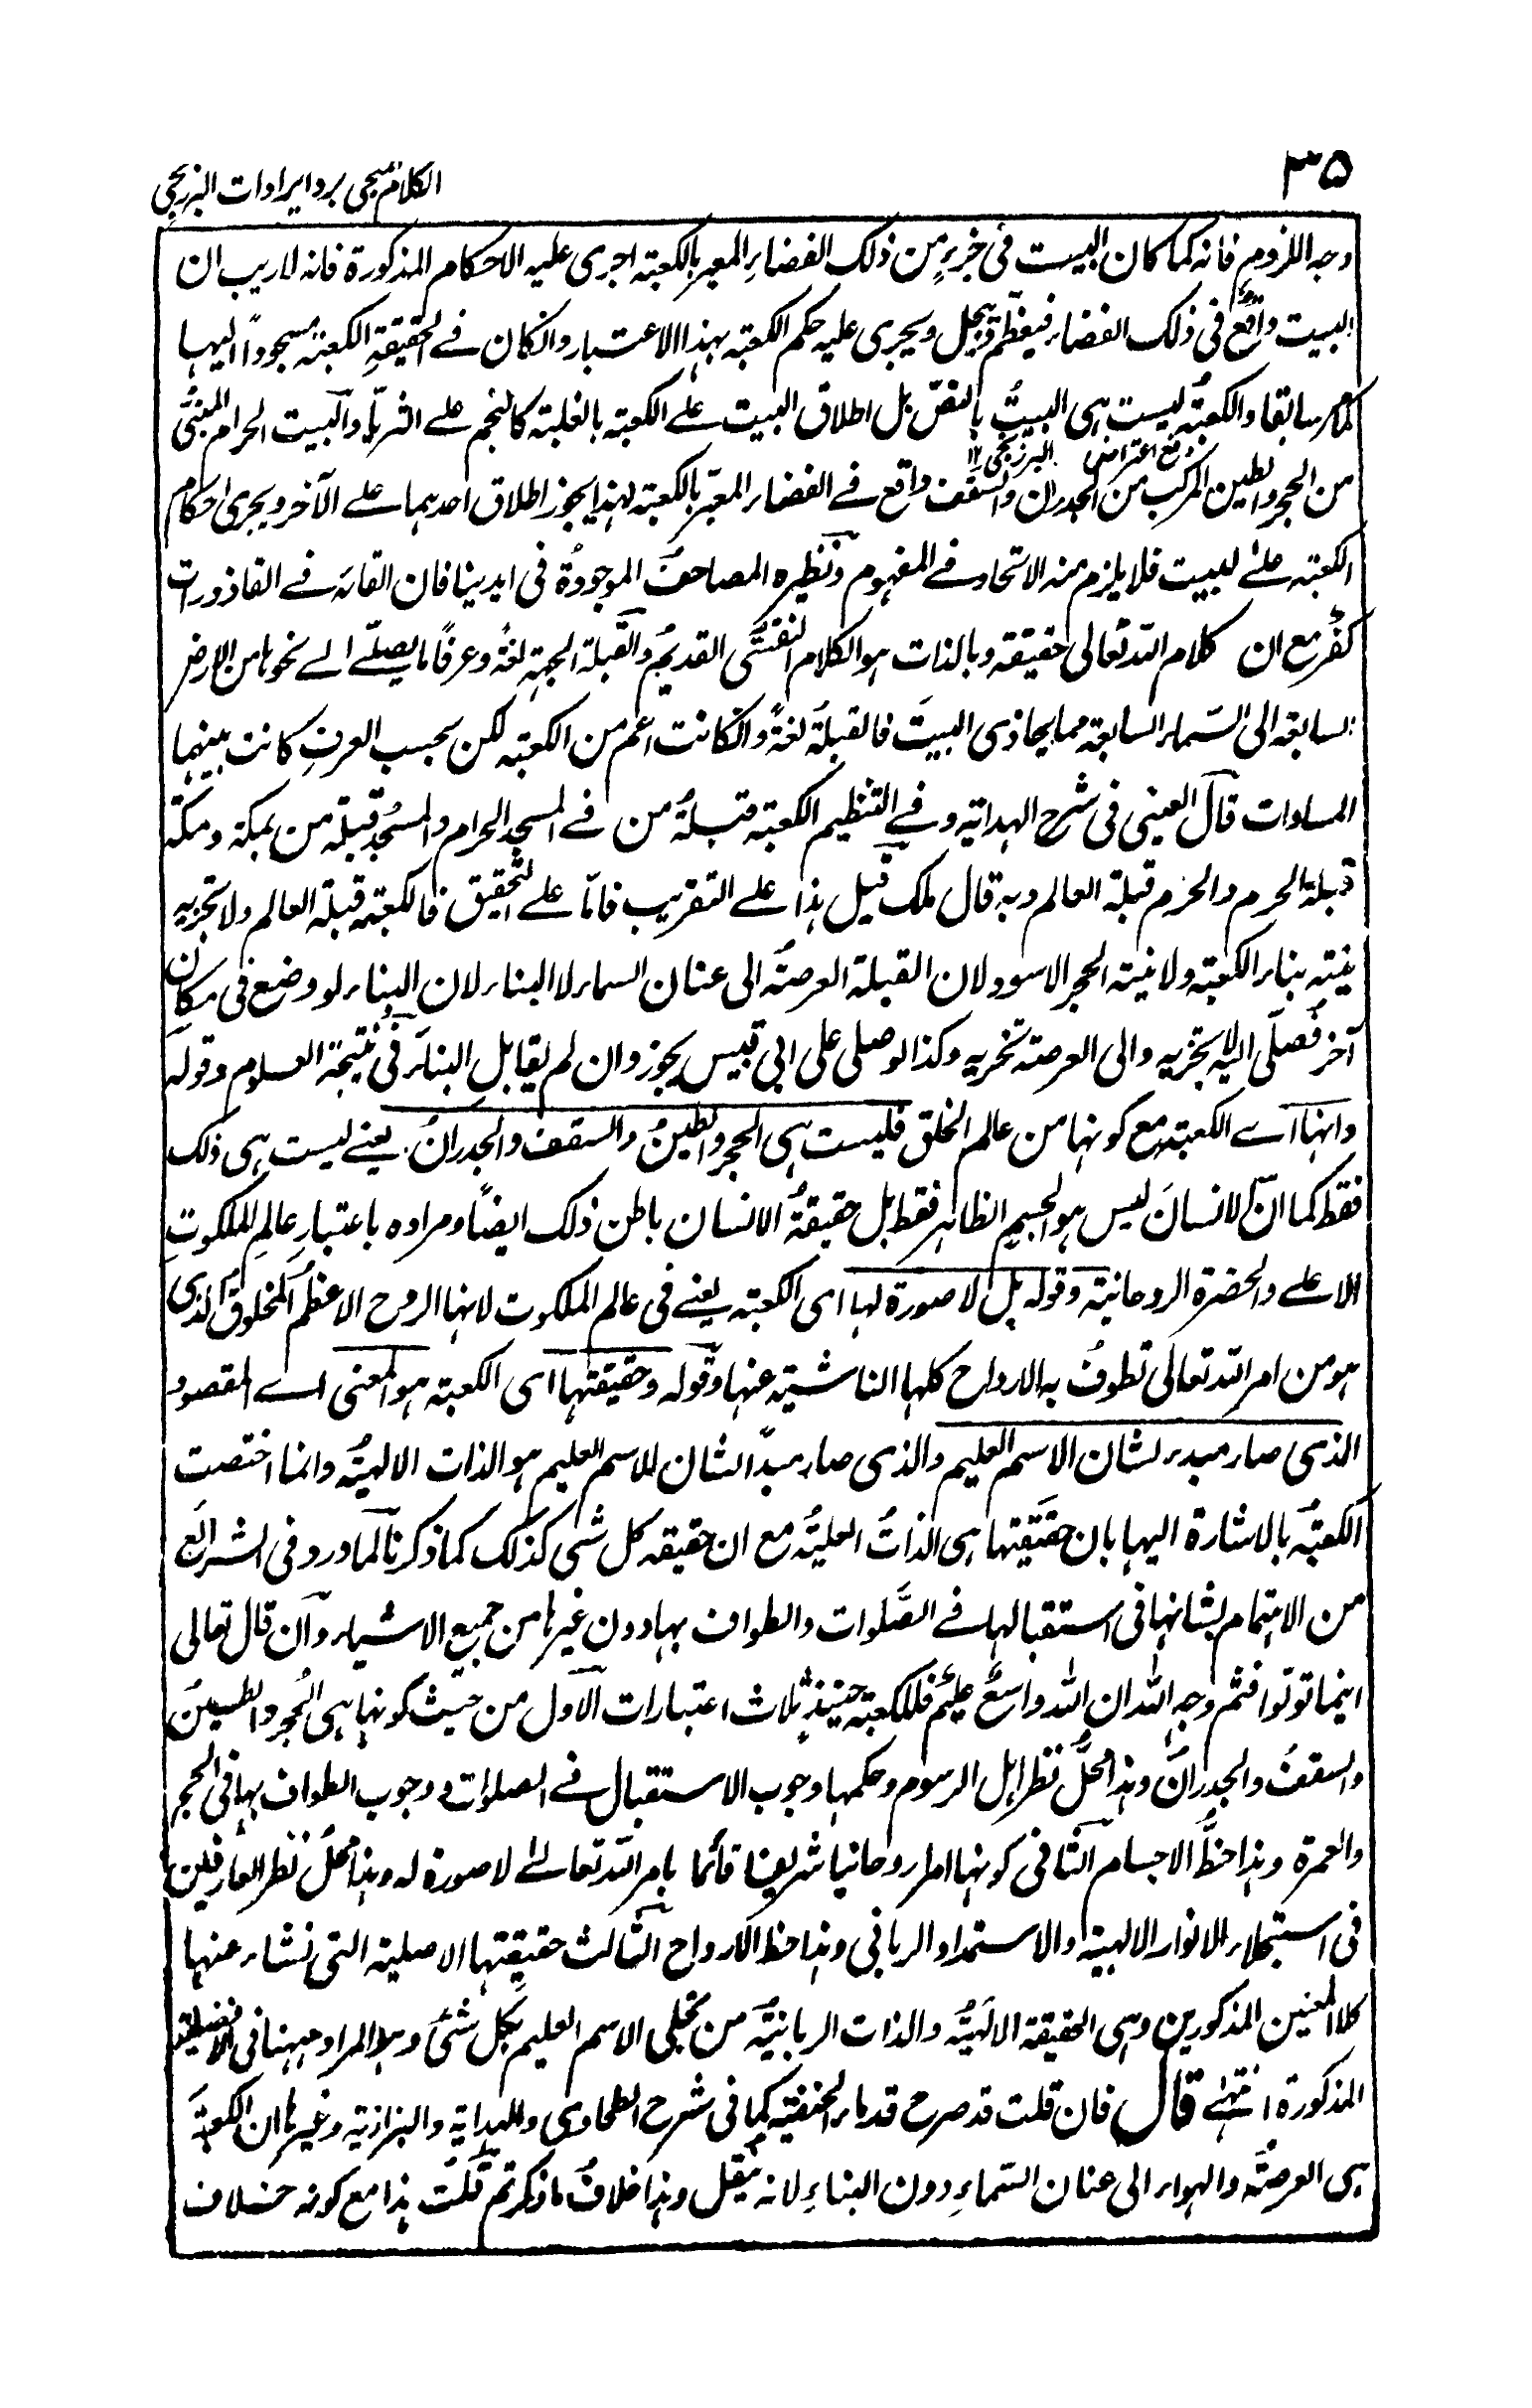 ٣٥
الكلام المنجى برد ايرادات البرزنجى
وجه اللزوم فانه كما كان البيت فى جزء من ذلك الفضاء المعبر بالكعبة اجرى عليه الاحكام المذكورة فانه لا ريب ان
البيت واقع فى ذلك الفضاء فيعظم ويبجل ويجرى عليه حكم الكعبة بهذا الاعتبار وانكان فے الحقيقةِ الكعبة مسجودًا اليها
كما مر سابقا والكعبةُ ليست هى البيتُ بالنصّ بل اطلاق البيت علے الكعبة بالغلبة كالنجم علے الثريّا والبيت الحرام المبنىُّ
دفع اعتراض البرزنجى ١٢
من الحجر والطين المركب من الجدران والسقف واقع فے الفضاء المعبّر بالكعبة لهذا يجوز اطلاق احدهما علے الآخر ويجرى احكام
الكعبة علے البيت فلا يلزم منه الاتحاد فے المفهوم ونظيره المصاحفُ الموجودةُ فى ايدينا فان القاءَه فے القاذورات
كفر مع ان كلام اللّه تعالى حقيقة وبالذات هو الكلام النفسىُّ القديمُ والقبلة الجهة لغةً وعرفًا ما يصلّے الے نحوها من الارض
السابعة الى السّماء السابعة مما يحاذى البيتَ فالقبلةُ لغةً وانكانت اعم من الكعبة لكن بحسب العرفِ كانت بينهما
المساوات قال العينى فى شرح الهداية وفے التنظيم الكعبة قبلةُ من فے المسجد الحرام والمسجدُ قبلة من بمكة ومكة
قبلة الحرم والحرم قبلة العالم وبه قال ملك قيل هذا علے التقريب فامّا علے التحقيق فالكعبة قبلة العالم ولا تجزيه
نيته بناء الكعبة ولا نية الحجر الاسود لان القبلة العرصةُ الى عنان السماء لا البناء لان البناء لو وضع فى مكان
آخر فصلّى اليه لا يجزيه والى العرصة تخريه وكذا لو صلى على ابى قبيس يجوز وان لم يقابل البناءَ فى نتيجة العلوم وقوله
وانها اے الكعبةُ مع كونها من عالم الخلق فليست هى الحجر والطينُ والسقف والجدرانُ يعنے ليست هى ذلك
فقط كما انّ الانسانَ ليس هو الجسم الظاهر فقط بل حقيقةُ الانسان باطن ذلك ايضًا ومراده باعتبارِ عالمِ الملكوتِ
الاعلے والحضرة الروحانية وقوله بل لا صورة لها اى الكعبة يعنے فى عالم الملكوت لانها الروح الاعظمُ المخلوقُ الذى
هو من امر اللّه تعالى تطوفُ به الارواح كلها الناشية عنها وقوله وحقيقتها اى الكعبة هو المعنى اے المقصود
الذى صار مبدء لشان الاسم العليم والذى صار مبدّا لشان للاسم العليم هو الذات الالهيّة وانما اختصت
الكعبةُ بالاشارة اليها بان حقيقتها هى الذاتُ العليّة مع ان حقيقة كل شى كذلك كما ذكرنا لما ورد فى الشرائع
من الاهتمام بشانها فى استقبالها فے الصّلوات والطواف بها دون غيرها من جميع الاشياء وان قال تعالى
اينما تولوا فثم وجه اللّه ان اللّه واسعٌ عليم فللكعبة حينئذٍ ثلاث اعتبارات الاول من حيث كونها هى الحجر والطينَ
والسقفُ والجدرانَ وهذا محلُّ نظر اهل الرسوم وحكمها وجوب الاستقبال فے الصلوات ووجوب الطواف بها فى الحج
والعمرة وهذا حظُّ الاجسام الثانى كونها امرا روحانيا شريفا قائما بامر اللّه تعالے لا صورة له وهذا محلُّ نظر العارفين
فى استجلاء الانوار الالهية والاستمداد الربانى وهذا حظ الارواح الثالث حقيقتها الاصلية التى نشاء عنها
كلا المعنين المذكورين وهى الحقيقة الالهيّة والذات الربانيّة من تجلى الاسم العليم بكل شئ وهو المراد ههنا فى الافضلية
المذكورة انتهے قال فان قلت قد صرح قدماء الحنفية كما فى شرح الطحاوى والهداية والبزازية وغيرها ان الكعبة
هى العرصةُ والهواء الى عنان السّماءِ دون البناءِ لانه ينقل وهذا خلافُ ما ذكرتم قلتُ هذا مع كونه خلاف